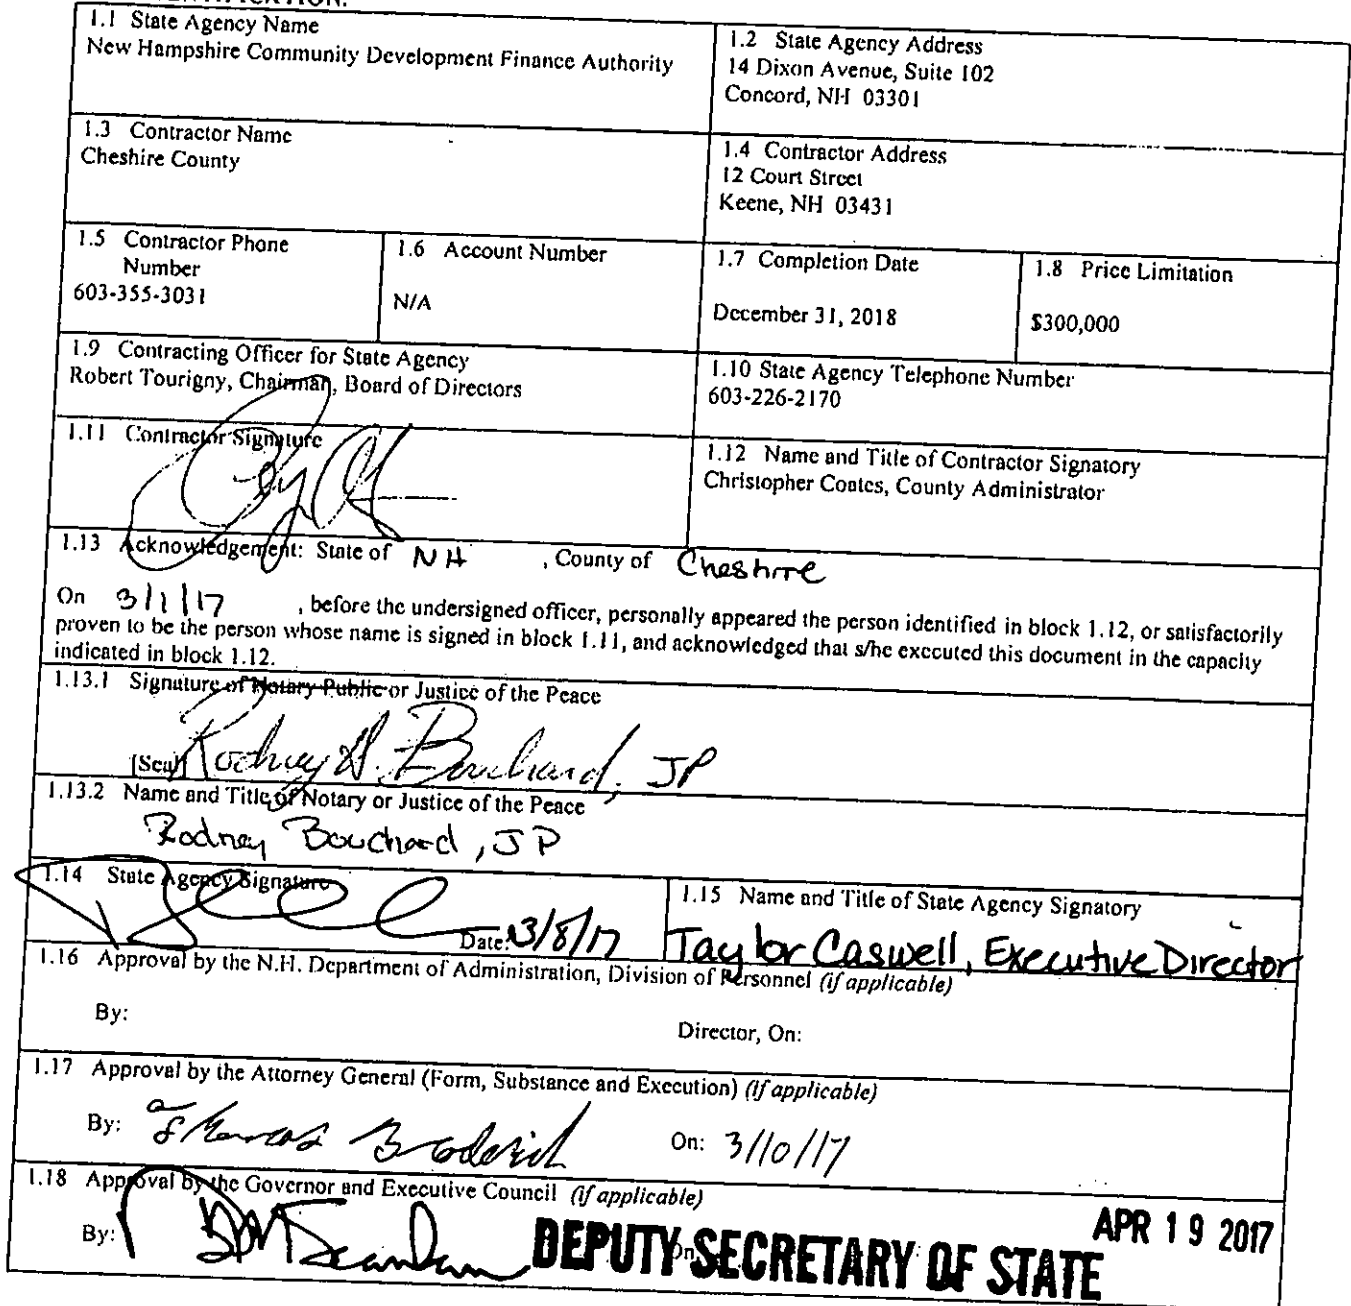 1.1 State Agency Name
New Hampshire Community Development Finance Authority
1.2 State Agency Address
14 Dixon Avenue, Suite 102
Concord, NH 03301
1.3 Contractor Name
Cheshire County
1.4 Contractor Address
12 Court Street
Keene, NH 03431
1.5 Contractor Phone
Number
603-355-3031
1.6 Account Number
N/A
1.7 Completion Date
December 31, 2018
1.8 Price Limitation
$300,000
1.9 Contracting Officer for State Agency
Robert Tourigny, Chairman, Board of Directors
1.10 State Agency Telephone Number
603-226-2170
1.11 Contractor Signature
1.12 Name and Title of Contractor Signatory
Christopher Coates, County Administrator
1.13 Acknowledgement: State of NH , County of Cheshire
On 3/1/17 , before the undersigned officer, personally appeared the person identified in block 1.12, or satisfactorily
proven to be the person whose name is signed in block 1.11, and acknowledged that s/he executed this document in the capacity
indicated in block 1.12.
1.13.1 Signature of Notary Public or Justice of the Peace
[Seal] Rodney A. Bouchard, JP
1.13.2 Name and Title of Notary or Justice of the Peace
Rodney Bouchard, JP
1.14 State Agency Signature
Date: 3/8/17
1.15 Name and Title of State Agency Signatory
Taylor Caswell, Executive Director
1.16 Approval by the N.H. Department of Administration, Division of Personnel (if applicable)
By: Director, On:
1.17 Approval by the Attorney General (Form, Substance and Execution) (if applicable)
By: Broderick On: 3/10/17
1.18 Approval by the Governor and Executive Council (if applicable)
By: DEPUTY SECRETARY OF STATE APR 19 2017